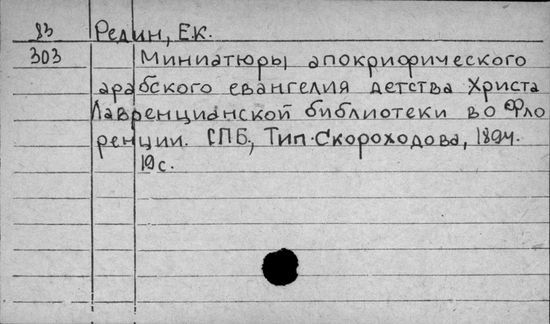 83 Редин, Е.К.
303 Миниатюры апокрифического
арабского евангелия детства Христа
Лавренцианской библиотеки во Фло
ренции. СПБ, Тип. Скороходова, 1894.
19с.